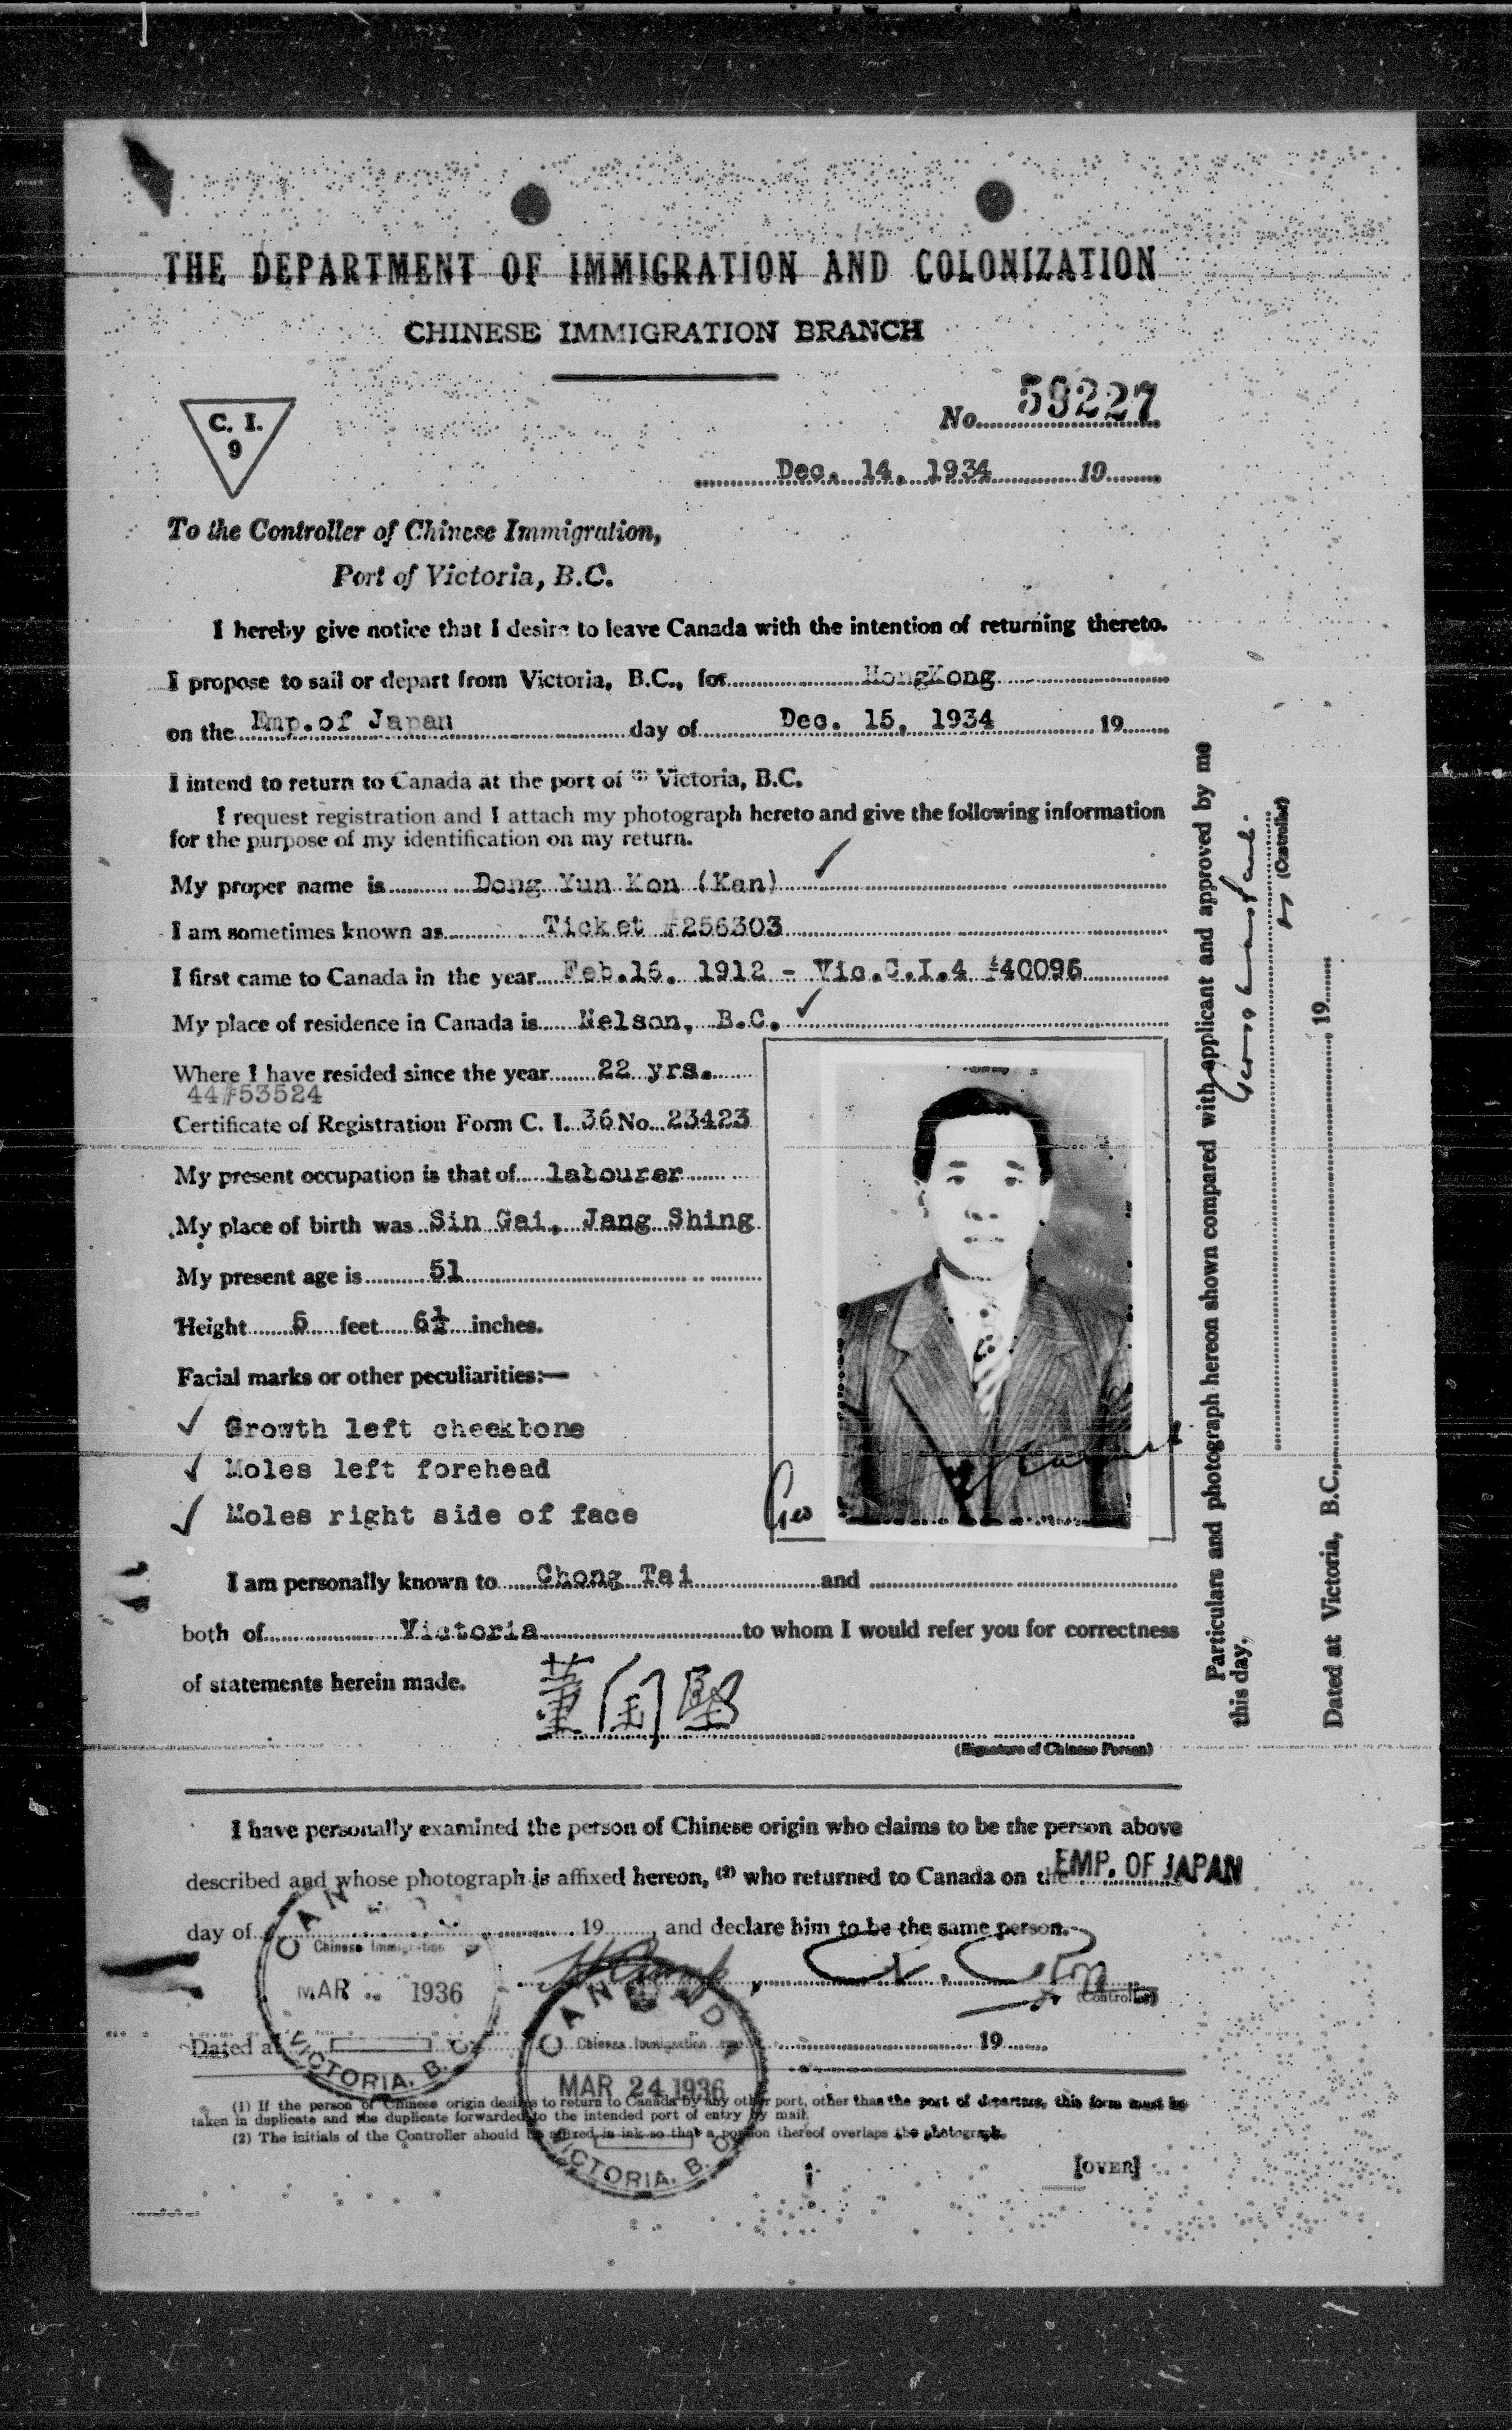 THE DEPARTMENT OF IMMIGRATION AND COLONIZATION
CHINESE IMMIGRATION BRANCH
C. I.
9
No. 59227
Dec. 14, 1934 19
To the Controller of Chinese Immigration,
Port of Victoria, B.C.
I hereby give notice that I desire to leave Canada with the intention of returning thereto.
I propose to sail or depart from Victoria, B.C., for HongKong
on the Emp.of Japan day of Dec. 15, 1934 19
I intend to return to Canada at the port of (1) Victoria, B.C.
I request registration and I attach my photograph hereto and give the following information
for the purpose of my identification on my return.
My proper name is Dong Yun Kon (Kan)
I am sometimes known as Ticket #256303
I first came to Canada in the year Feb.16. 1912 - Vic.C.I.4 #40096
My place of residence in Canada is Nelson, B.C.
Where I have resided since the year 22 yrs.
44#53524
Certificate of Registration Form C. I. 36 No. 23423
My present occupation is that of labourer
My place of birth was Sin Gai, Jang Shing
My present age is 51
Height 5 feet 6½ inches.
Facial marks or other peculiarities:—
Growth left cheekbone
Moles left forehead
Moles right side of face
Geo
I am personally known to Chong Tai and
both of Victoria to whom I would refer you for correctness
of statements herein made.
董
(Signature of Chinese Person)
I have personally examined the person of Chinese origin who claims to be the person above
described and whose photograph is affixed hereon, (2) who returned to Canada on the EMP. OF JAPAN
day of 19 , and declare him to be the same person.
(Controller)
Dated at 19
CANADA
Chinese Immigration
MAR 1936
VICTORIA. B. C.
CANADA
Chinese Immigration
MAR 24 1936
VICTORIA. B. C.
(1) If the person of Chinese origin desires to return to Canada by any other port, other than the port of departure, this form must be
taken in duplicate and the duplicate forwarded to the intended port of entry by mail.
(2) The initials of the Controller should be affixed in ink so that a portion thereof overlaps the photograph.
[OVER]
Particulars and photograph hereon shown compared with applicant and approved by me
this day,
(Controller)
Dated at Victoria, B.C., 19